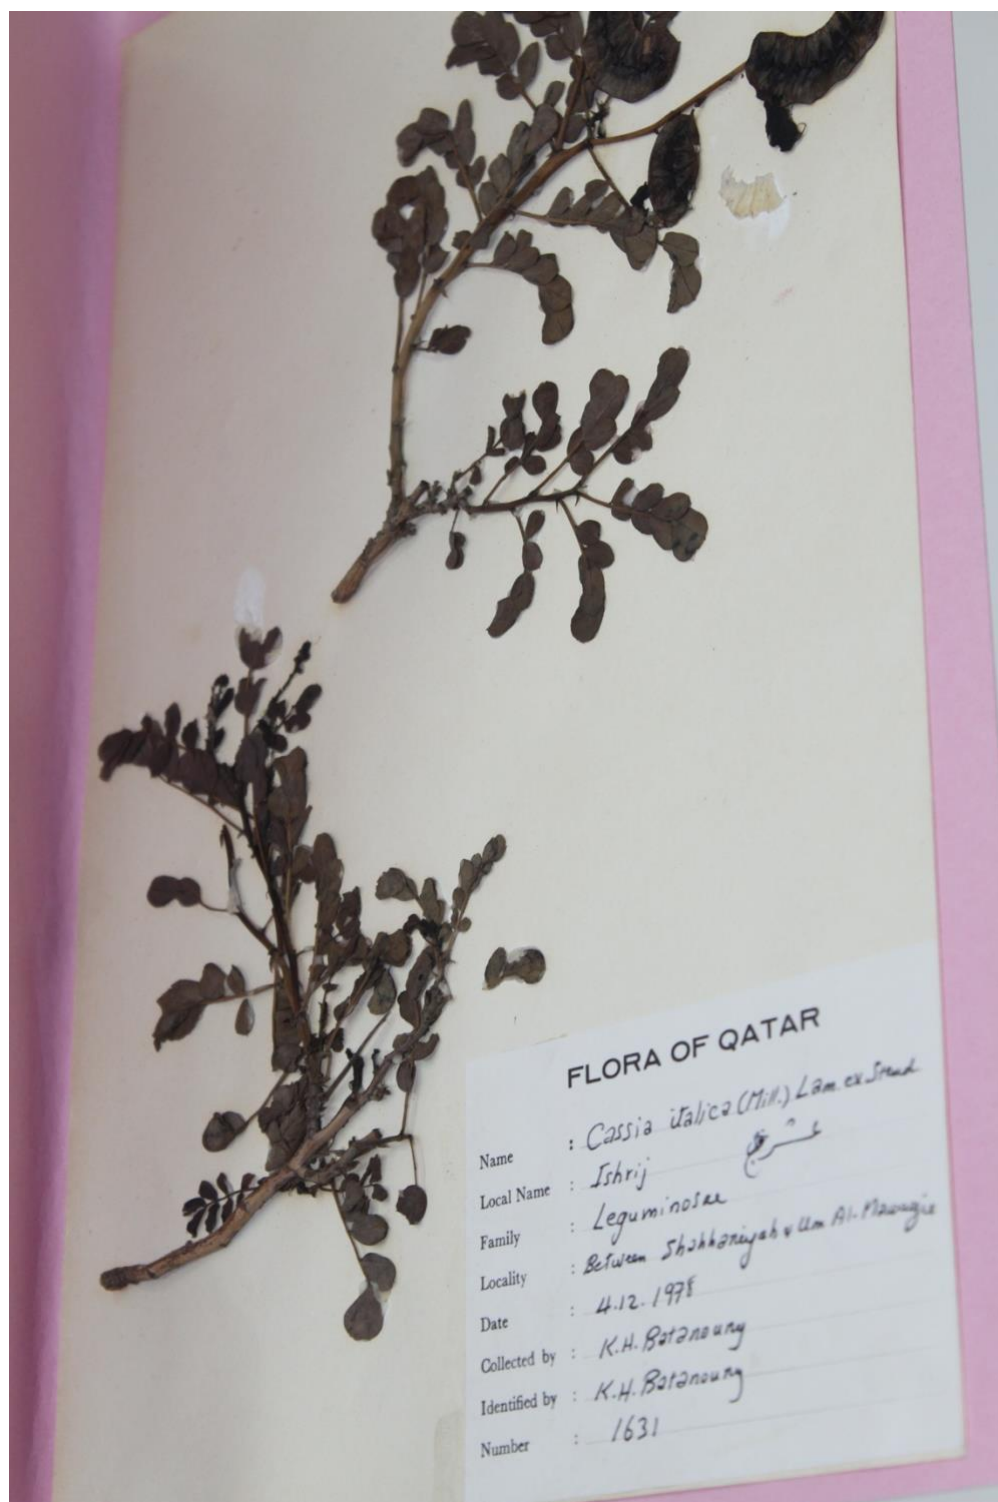 FLORA OF QATAR
Name : Cassia italica (Mill.) Lam. ex Steud
Local Name : Ishrij عشرج
Family : Leguminosae
Locality : Between Shahhaniyah & Um Al-Mawagie
Date : 4.12.1978
Collected by : K.H. Batanouny
Identified by : K.H. Batanouny
Number : 1631